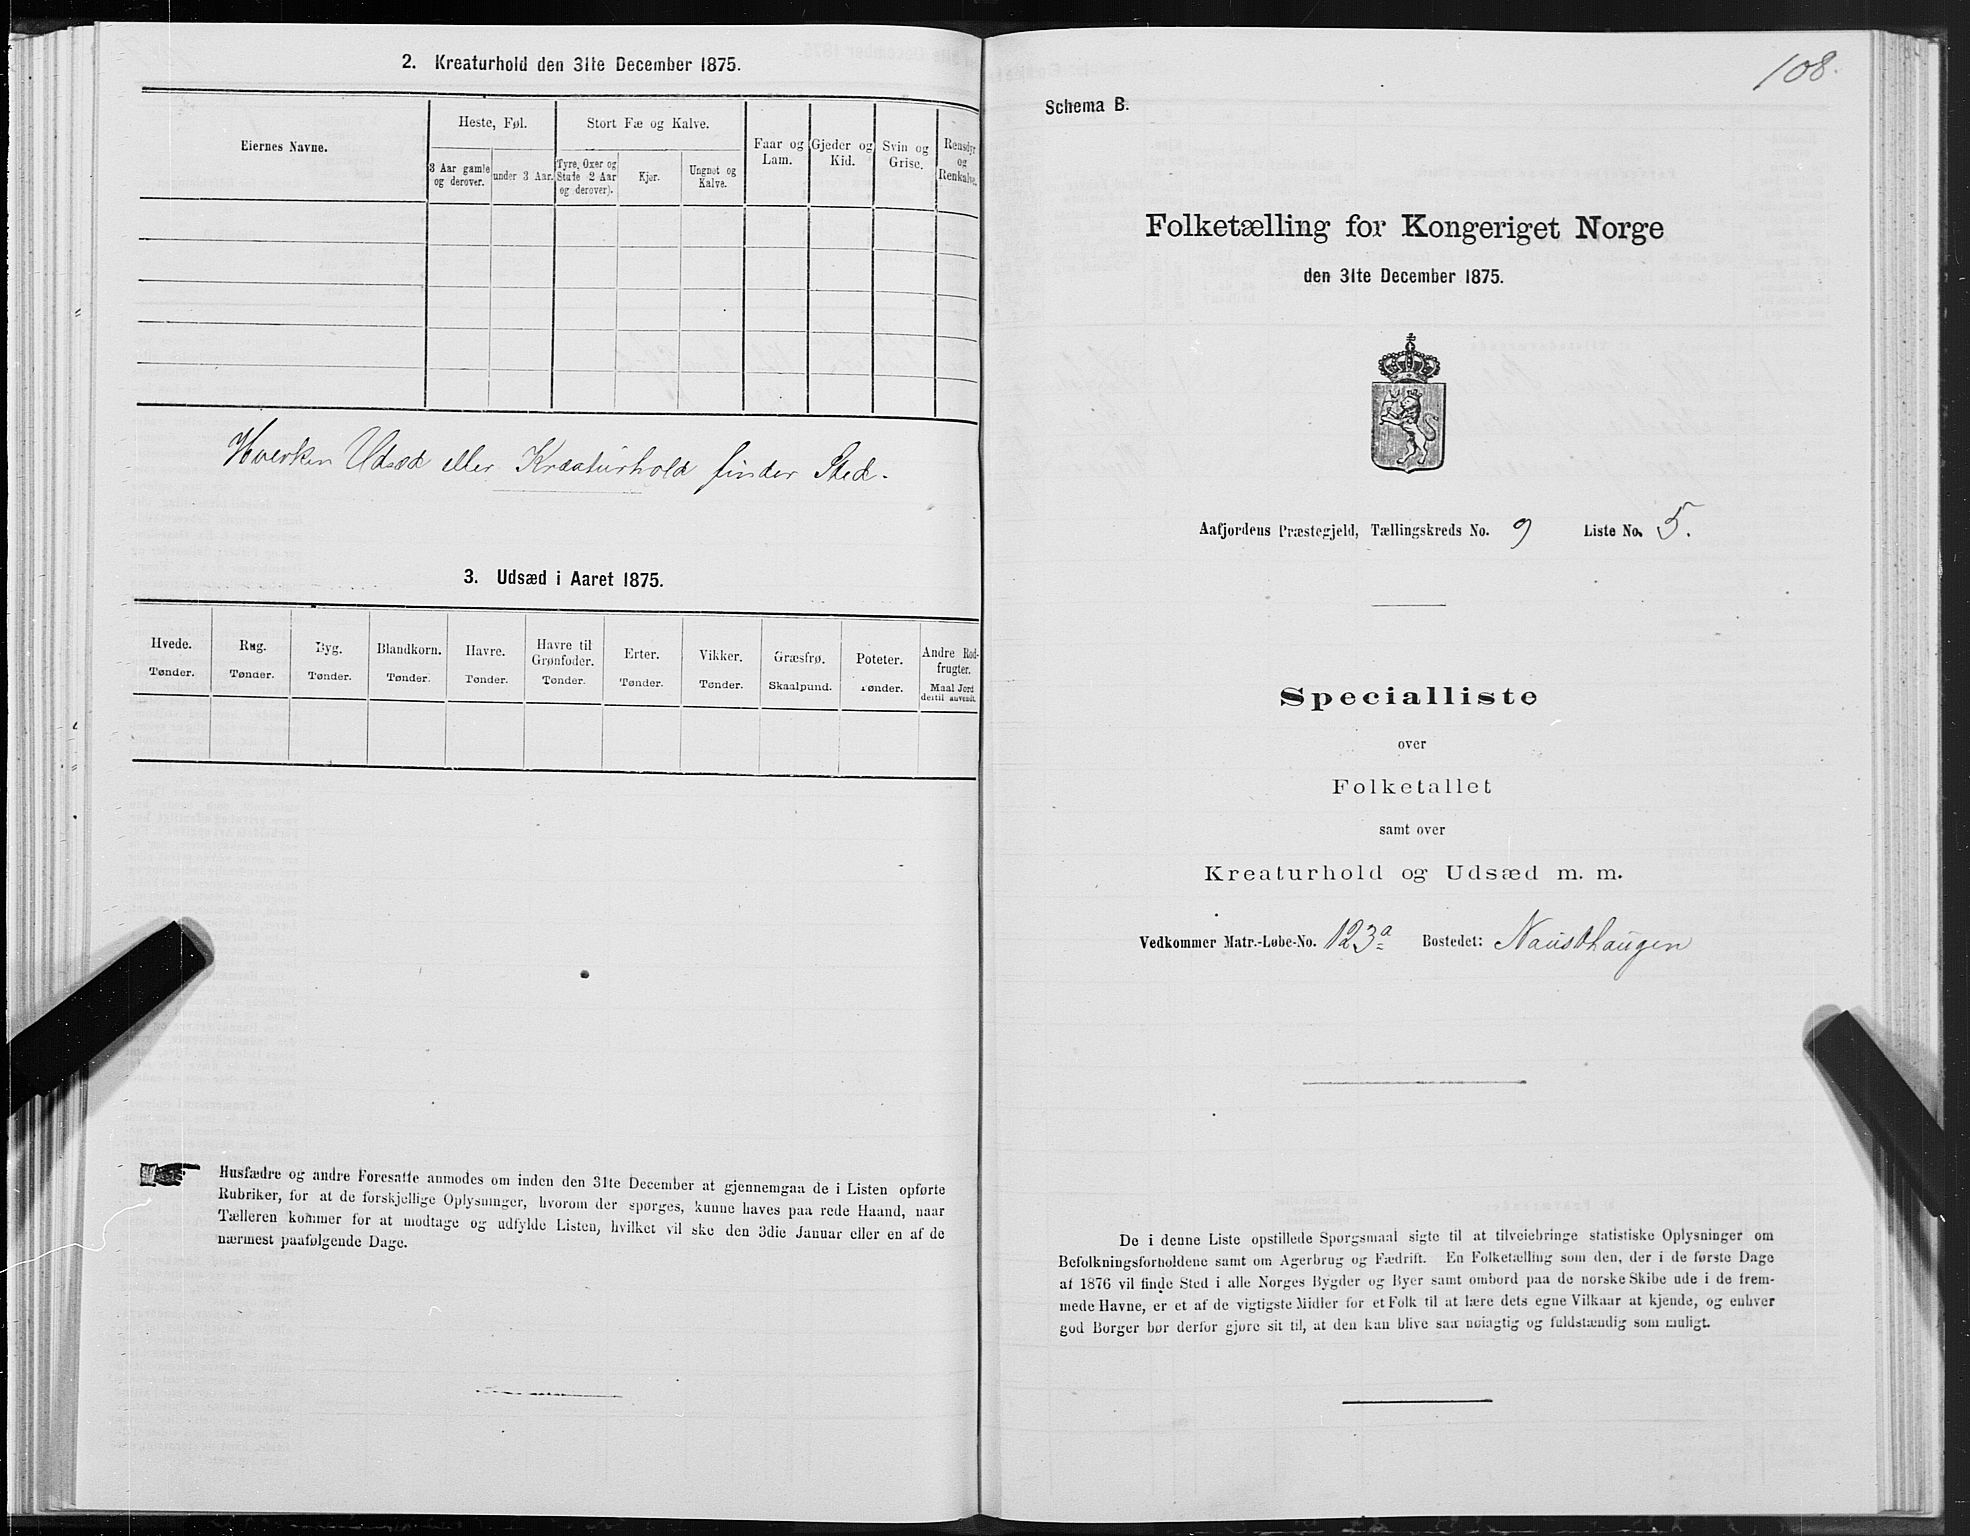 2. Kreaturhold den 31te December 1875.
Eiernes Navne.
Heste, Føl.
3 Aar gamle
og derover.
under 3 Aar.
Stort Fæ og Kalve.
Tyre, Oxer og
Stude 2 Aar
og derover).
Kjør.
Ungnøt og
Kalve.
Faar og
Lam.
Gjeder og
Kid.
Svin og
Grise.
Rensdyr
og
Renkalve.
Hverken Udsæd eller Kreaturhold finder Sted.
3. Udsæd i Aaret 1875.
Hvede.
Tønder.
Rug.
Tønder.
Byg.
Tønder.
Blandkorn.
Tønder.
Havre.
Tønder.
Havre til
Grønfoder.
Tønder.
Erter.
Tønder.
Vikker.
Tønder.
Græsfrø.
Skaalpund.
Poteter.
Tønder.
Andre Rod-
frugter.
Maal Jord
dertil anvendt.
Husfædre og andre Foresatte anmodes om inden den 31te December at gjennemgaa de i Listen opførte
Rubriker, for at de forskjellige Oplysninger, hvorom der spørges, kunne haves paa rede Haand, naar
Tælleren kommer for at modtage og udfylde Listen, hvilket vil ske den 3die Januar eller en af de
nærmest paafølgende Dage.
108.
Schema B.
Folketælling for Kongeriget Norge
den 31te December 1875.
Aafjordens Præstegjeld, Tællingskreds No. 9 Liste No. 5.
Specialliste
over
Folketallet
samt over
Kreaturhold og Udsæd m. m.
Vedkommer Matr.-Løbe-No. 123a Bostedet: Nausthaugen
De i denne Liste opstillede Spørgsmaal sigte til at tilveiebringe statistiske Oplysninger om
Befolkningsforholdene samt om Agerbrug og Fædrift. En Folketælling som den, der i de første Dage
af 1876 vil finde Sted i alle Norges Bygder og Byer samt ombord paa de norske Skibe ude i de frem-
mede Havne, er et af de vigtigste Midler for et Folk til at lære dets egne Vilkaar at kjende, og enhver
god Borger bør derfor gjøre sit til, at den kan blive saa nøiagtig og fuldstændig som muligt.